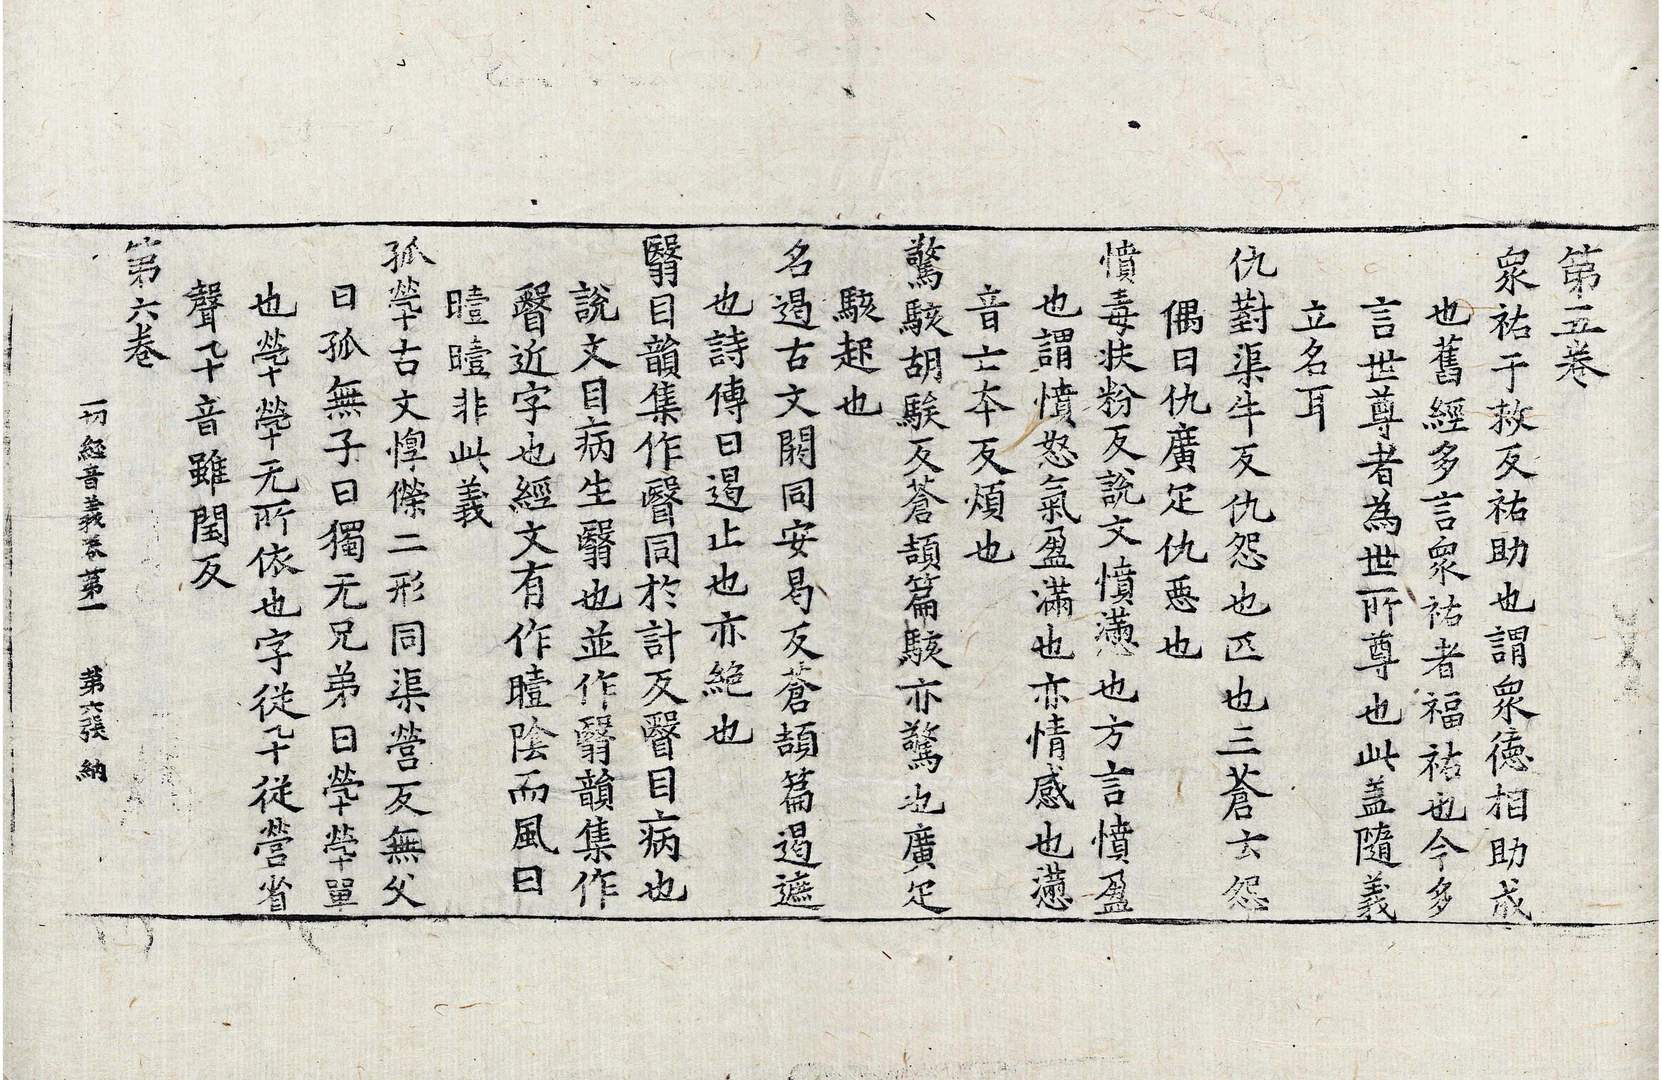 第五卷
衆祐于救反祐助也謂衆德相助成
也舊經多言衆祐者福祐也今多
言世尊者為世所尊也此盖隨義
立名耳
仇對渠牛反仇怨也匹也三蒼云怨
偶曰仇廣疋仇惡也
憤毒扶粉反說文憤懣也方言憤盈
也謂憤怒氣盈滿也亦情感也懣
音亡本反煩也
驚駭胡騃反蒼頡篇駭亦驚也廣疋
駭起也
名遏古文閼同安曷反蒼頡篇遏遮
也詩傳曰遏止也亦絶也
翳目韻集作瞖同於計反瞖目病也
說文目病生翳也並作翳韻集作
瞖近字也經文有作曀陰而風曰
曀曀非此義
孤煢古文惸㷀二形同渠營反無父
曰孤無子曰獨无兄弟曰煢煢單
也煢煢无所依也字從卂從營省
聲卂音雖閏反
第六卷
一切經音義卷第一　第六張　納